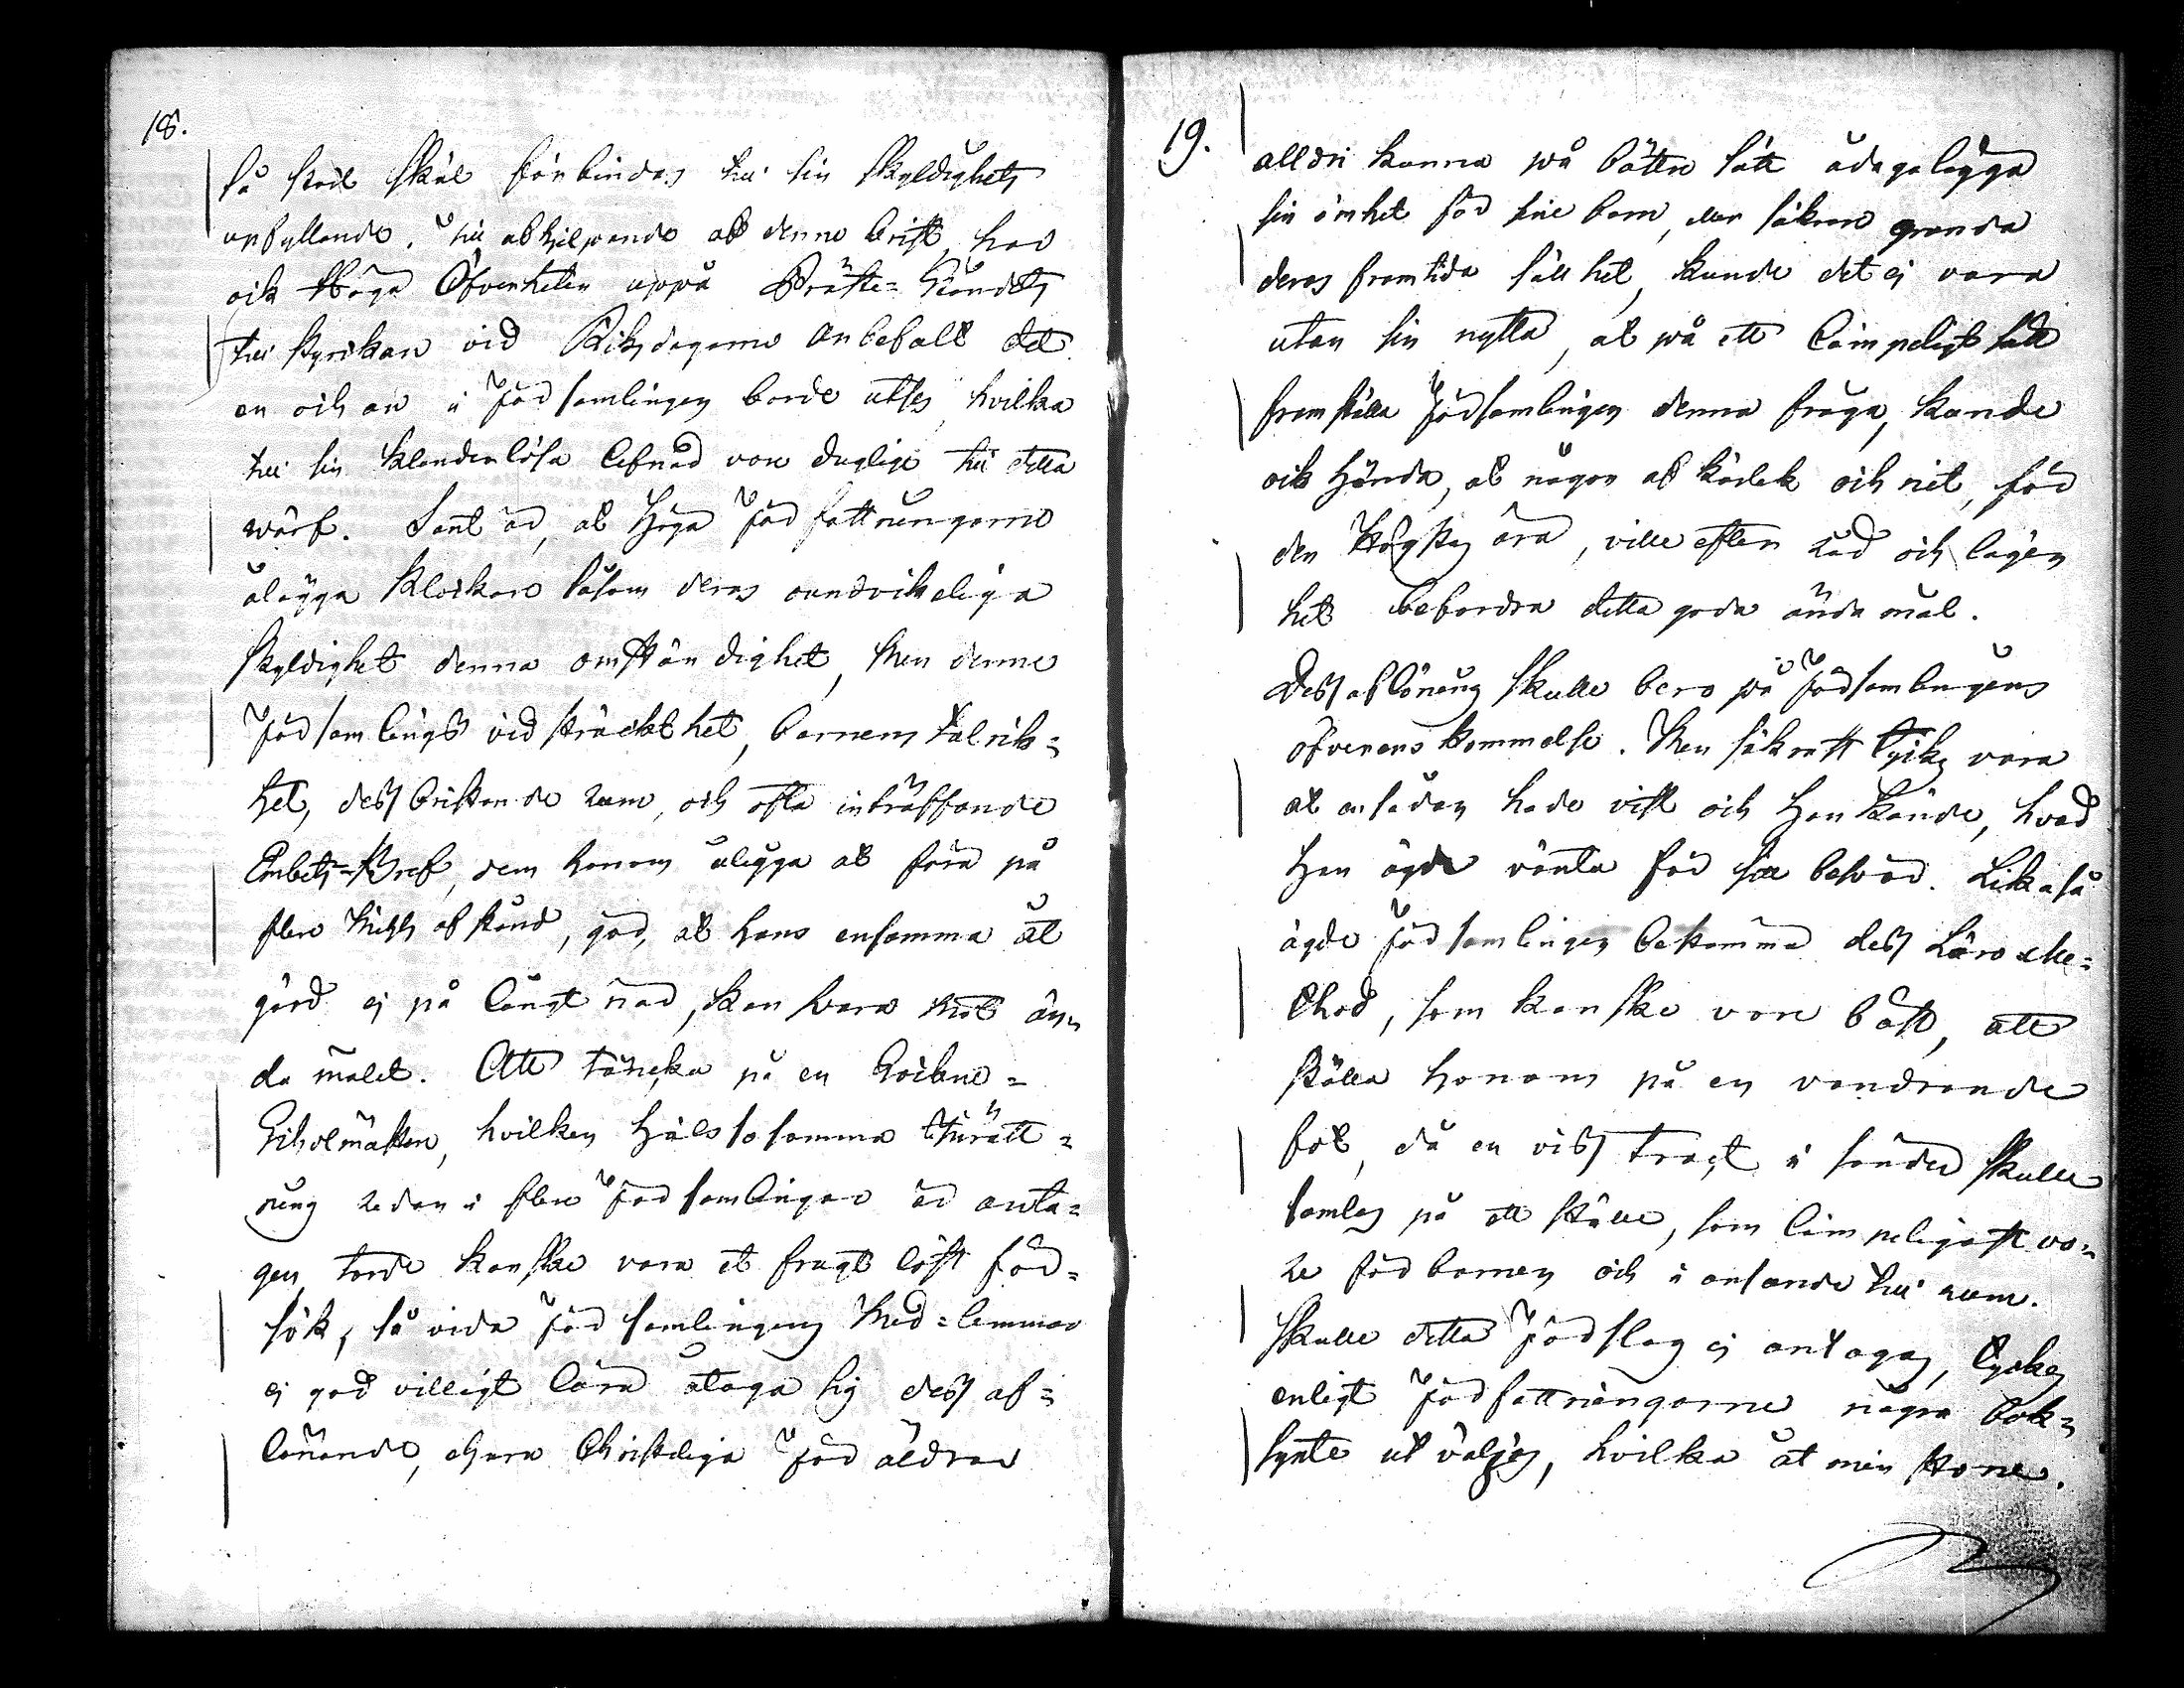 18.
så stort skäl förbindas till sin skyldighets
upfyllande. Till afhjelpande af denne brist har
ock Höga Öfverheten uppå Präste-Ståndets
tillstyrkan vid Riksdagarne anbefalt det
en och an i Församlingen borde utses, hvilka
till sin klanderlösa lefnad vore duglige till detta
värf. Sant är, at Höga Författningarne
ålägga Klockare såsom deras oundvikeliga
skyldighet denna omständighet, Men denne
Församlings vidsträckthet, barnens talrik=
het, dess bristande rum, och ofta inträffande
Embets-Bref, dem honom ålegga at föra på
flere Mihls afstånd, gör, at hans ensamma åt
gärd ej på långt när, kan svara mot än=
da målet. Att täncka på en Sockne=
Scholmästare, hvilken hälsosamma Inrätt=
ning redan i flere Församlingar är anta=
gen, torde kanske vara et frugtlöst för=
sök, så vida Församlingens Med=lemmar
ej god villigt lära åtaga sig dess af=
lönande, ehuru Christeliga Föräldrar
19.
alldri kunna på bättre sätt ådagalägga
sin ömhet för sine barn, eller säkrare grunda
deras framtida sällhet, kunde det ej vara
utan sin nytta, at på ett lämpeligt sätt
framställa Församlingen denna fråga, kunde
ock hända, at någon af kärlek och nit, för
den Högstes ära, ville efter råd och lägen
het befordra detta goda ändamål.
Dess aflöning skulle bero på Församlingens
öfverenskommelse. Men säkrast tycks vara
at en sådan hade vist och han kände, hvad
han ägde vänta för sitt besvär. Likaså
ägde Församlingen bestämma dess Läro Me=
thod, som kanske vore bäst, att
ställa honom på en vandrande
fot, då en viss tract i sänder skulle
samlas på ett ställe, som lämpeligast vo=
re för barnen och i anseende till rum.
Skulle detta Förslag ej antagas, tycks
enligt Författningarne några bok=
synte ut väljas, hvilka åt minstone.